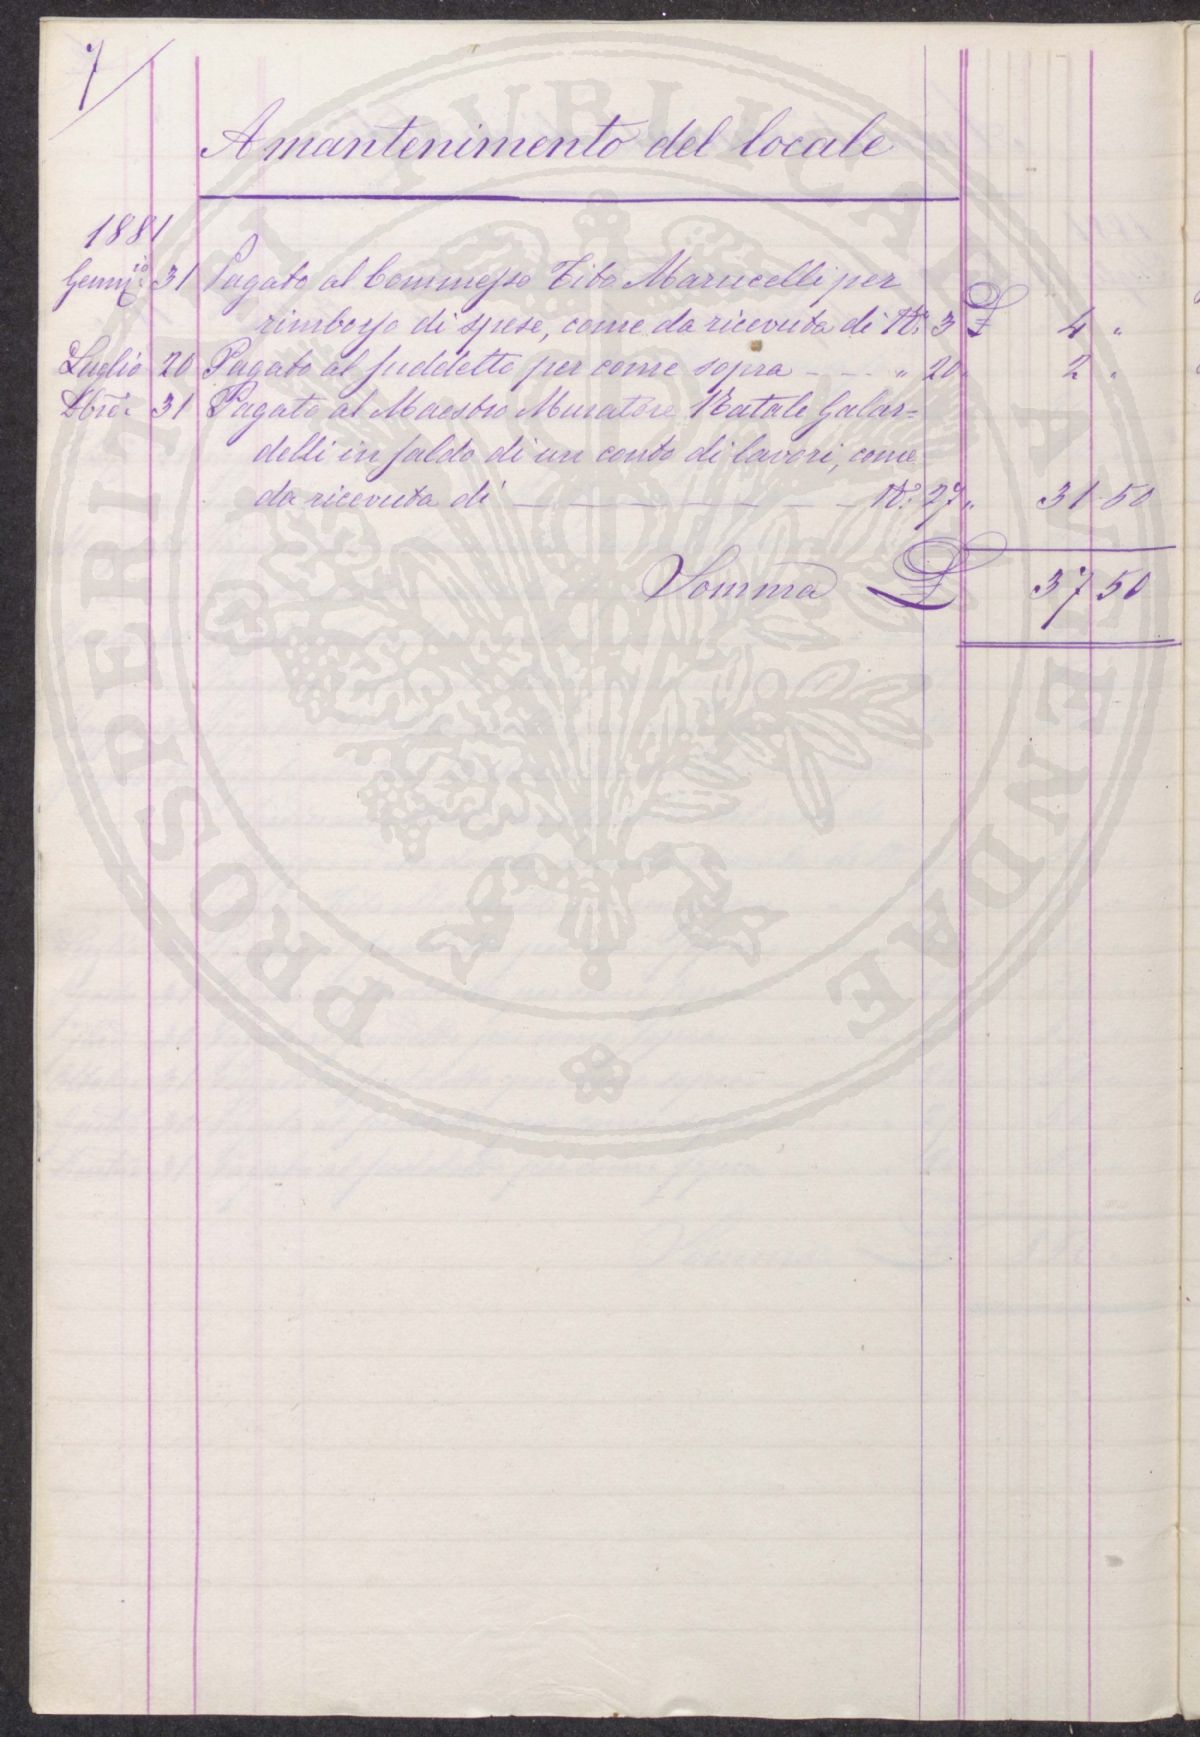 7
A mantenimento del locale
1881
Genn.io 31 Pagato al Commesso Tito Marucelli per
rimborso di spese, come da ricevuta di N.° 3 £ 4 "
Luglio 20 Pagato al suddetto per come sopra - - - " 20 " 2 "
Dbre. 31 Pagato al Maestro Muratore Natale Galar=
delli in saldo di un conto di lavori, come
da ricevuta di - - - - - - - N.° 27 " 31 50
Somma £ 37 50
PROSPERITATI PVBLICAE AVGENDAE